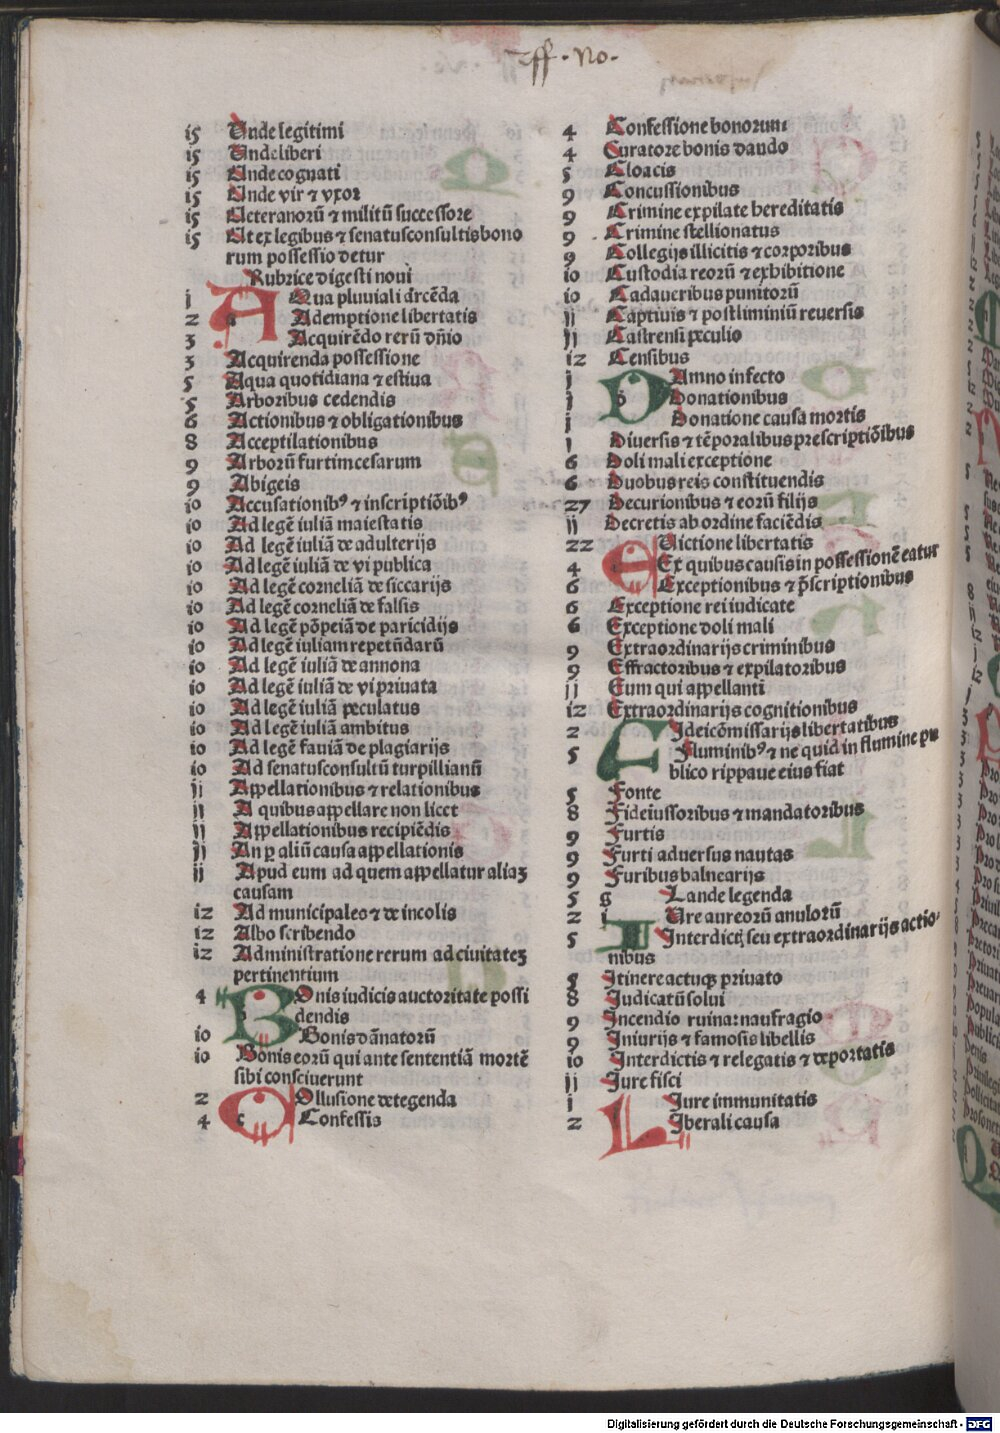 ff . No .
is Unde legitimi
is Unde liberi
is Unde cognati
is Unde vir ⁊ vxor
is Veteranorū ⁊ militū successore
is Ut ex legibus ⁊ senatusconsultis bono
rum possessio detur
Rubrice digesti noui
j AQua pluuiali arcēda
2 a Ademptione libertatis
3 Acquirēdo rerū dn̄io
3 Acquirenda possessione
5 Aqua quotidiana ⁊ estiua
5 Arboribus cedendis
6 Actionibus ⁊ obligationibus
8 Acceptilationibus
9 Arborū furtim cesarum
9 Abigeis
io Accusationibꝰ ⁊ inscriptiōibꝰ
io Ad legē iuliā maiestatis
io Ad legē iuliā de adulterijs
io Ad legē iuliā de vi publica
io Ad legē corneliā de siccarijs
io Ad legē corneliā de falsis
io Ad legē pōpeiā de paricidijs
io Ad legē iuliam repetūdarū
io Ad legē iuliā de annona
io Ad legē iuliā de vi priuata
io Ad legē iuliā peculatus
io Ad legē iuliā ambitus
io Ad legē fauiā de plagiarijs
io Ad senatusconsultū turpillianū
ii Appellationibus ⁊ relationibus
ii A quibus appellare non licet
ii Appellationibus recipiēdis
ii An ꝑ aliū causa appellationis
ii Apud eum ad quem appellatur aliaʒ
causam
i2 Ad municipales ⁊ de incolis
i2 Albo scribendo
i2 Administratione rerum ad ciuitateʒ
pertinentium
4 BOnis iudicis auctoritate possi
b dendis
io Bonis dānatorū
io Bonis eorū qui ante sententiā mortē
sibi consciuerunt
2 COllusione detegenda
4 c Confessis
4 Confessione bonorum
4 Curatore bonis dando
5 Cloacis
9 Concussionibus
9 Crimine expilate hereditatis
9 Crimine stellionatus
9 Collegijs illicitis ⁊ corporibus
io Custodia reorū ⁊ exhibitione
io Cadaueribus punitorū
ii Captiuis ⁊ postliminiū reuersis
ii Castrensi peculio
i2 Censibus
j DAmno infecto
j d Donationibus
j Donatione causa mortis
j Diuersis ⁊ tēporalibus prescriptiōibus
6 Doli mali exceptione
6 Duobus reis constituendis
27 Decurionibus ⁊ eorū filijs
ii Decretis ab ordine faciēdis
22 EUictione libertatis
4 e Ex quibus causis in possessionē eatur
6 Exceptionibus ⁊ p̄scriptionibus
6 Exceptione rei iudicate
6 Exceptione doli mali
9 Extraordinarijs criminibus
9 Effractoribus ⁊ expilatoribus
ii Eum qui appellanti
i2 Extraordinarijs cognitionibus
2 FIdeicōmissarijs libertatibus
5 Fluminibꝰ ⁊ ne quid in flumine pu
blico rippaue eius fiat
5 Fonte
8 Fideiussoribus ⁊ mandatoribus
9 Furtis
9 Furti aduersus nautas
9 Furibus balnearijs
5 g Lande legenda
2 i Ure aureorū anulorū
5 Interdictis seu extraordinarijs actio-
nibus
5 Itinere actuqꝫ priuato
8 Iudicatū solui
9 Incendio ruina: naufragio
9 Iniurijs ⁊ famosis libellis
io Interdictis ⁊ relegatis ⁊ deportatis
ii Iure fisci
j Iure immunitatis
2 LIberali causa
Digitalisierung gefördert durch die Deutsche Forschungsgemeinschaft - DFG